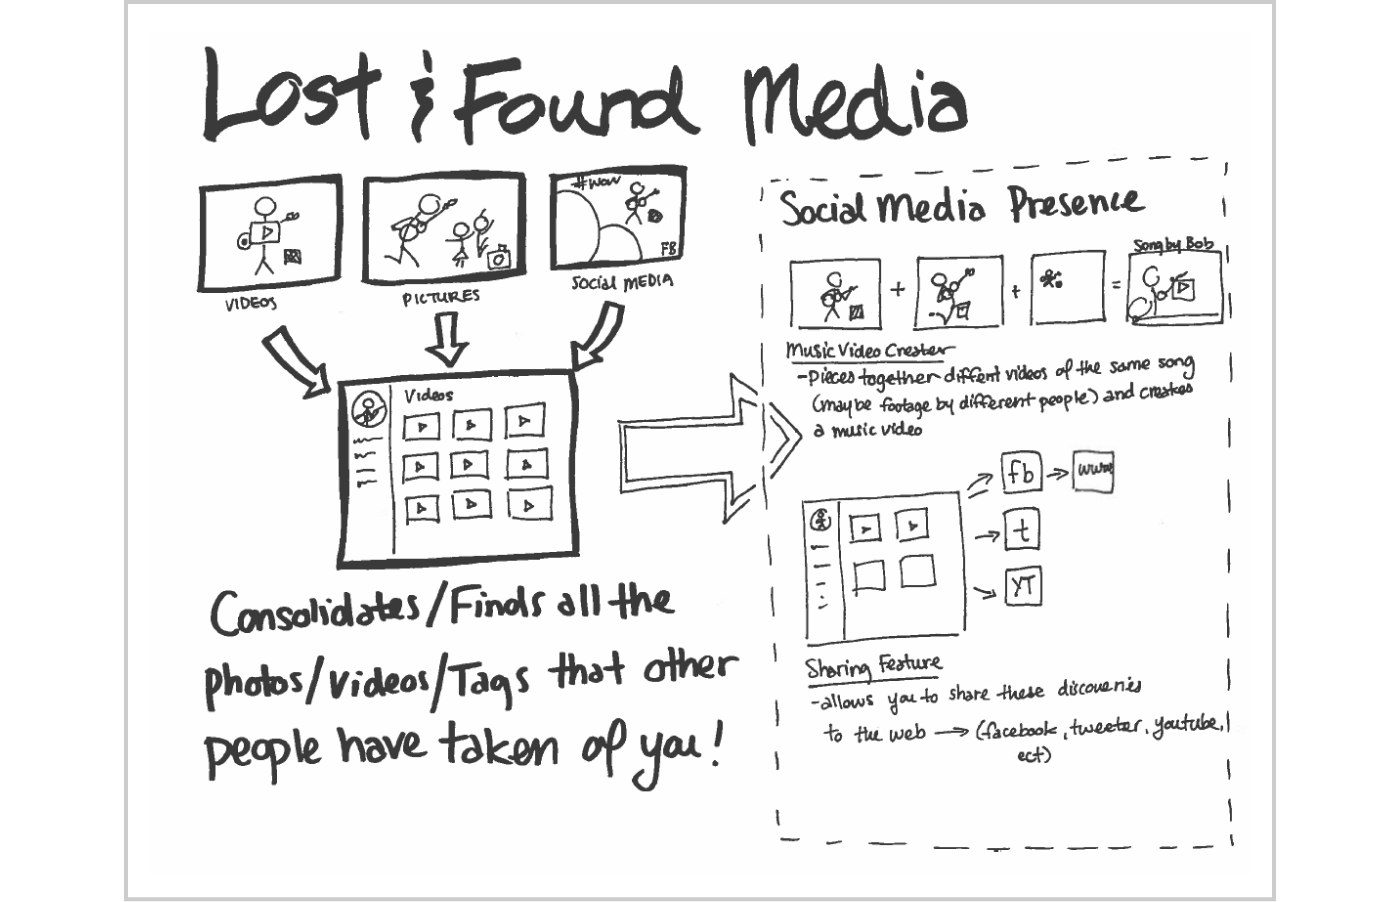 Lost & Found Media
#wow
FB
VIDEOS
PICTURES
Social MEDIA
Videos
Consolidates/Finds all the
photos/videos/Tags that other
people have taken of you!
Social Media Presence
Song by Bob
+ + =
Music Video Creater
- Pieces together diffent videos of the same song
(maybe footage by different people) and creates
a music video
fb
www
t
YT
Sharing Feature
- allows you to share these discoveries
to the web → (facebook, tweeter, youtube,
ect)